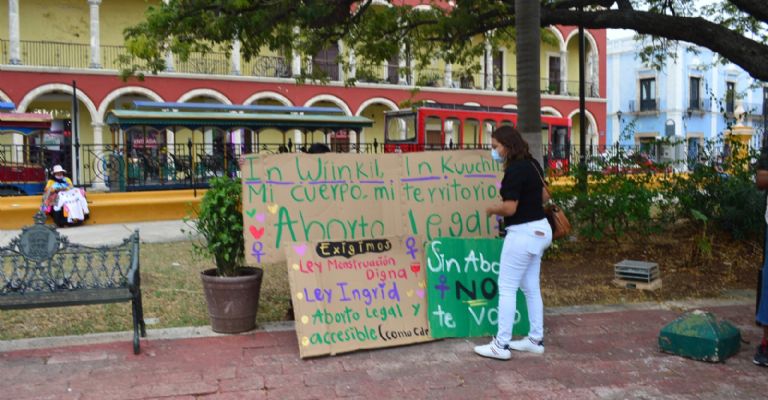 In Wíinkil, In Kuuchil
Mi cuerpo, mi territorio
Aborto legal
Exigimos
Ley Menstruación Digna
Ley Ingrid
Aborto Legal y
accesible (como
Sin Abo
NO
te Vo